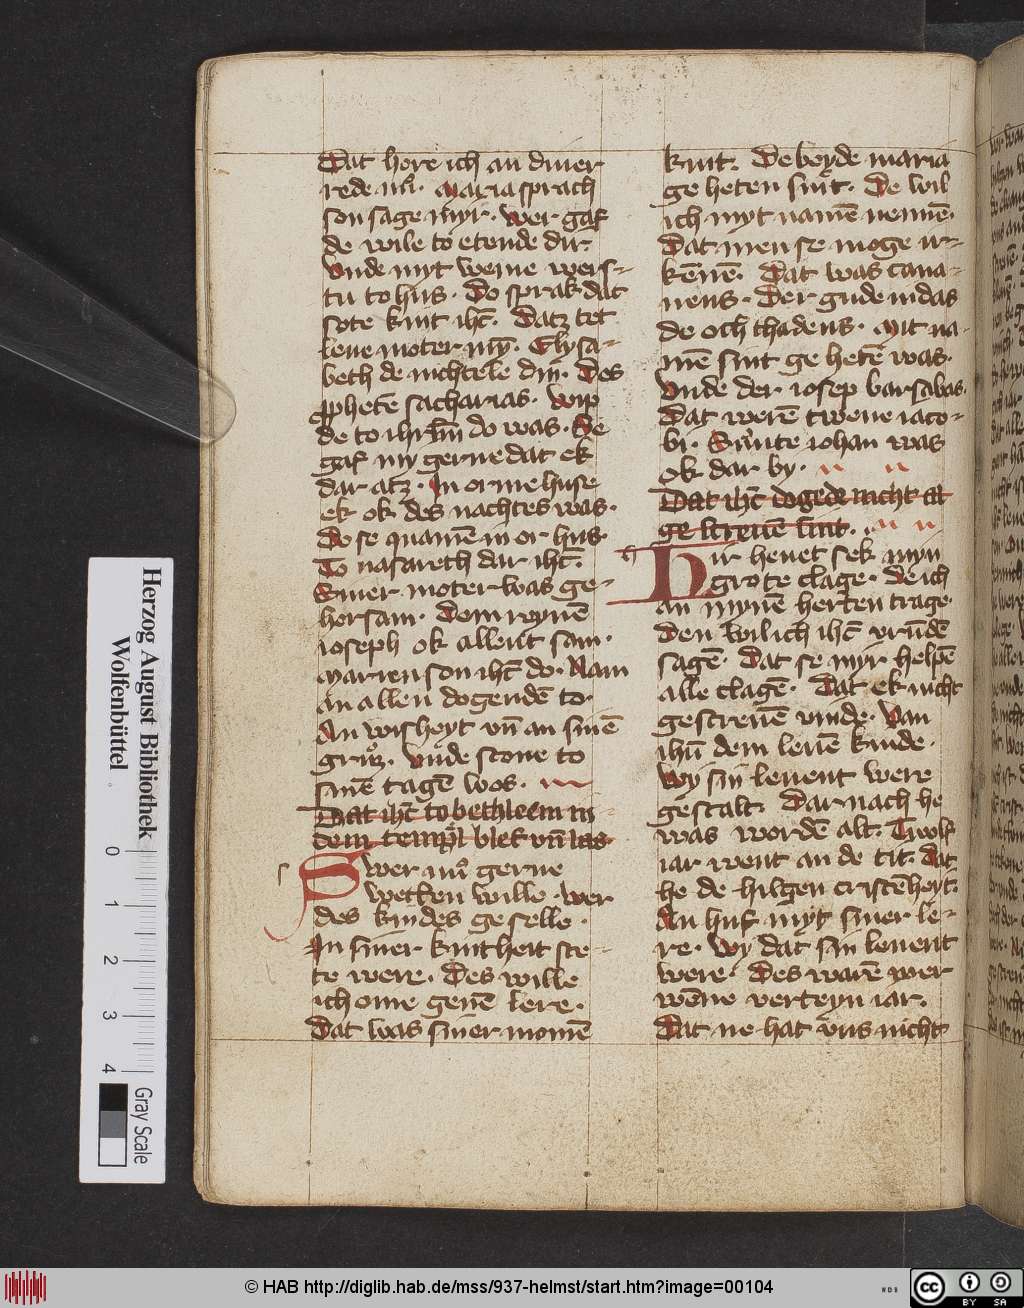 Dat hore ich an diner
rede nu. Maria sprach
son sage myr. Wer gaf
de wile to etende dir
Vnde myt weme wers-
tu to hus. Do sprak dat
sote kint ihc. Datz tet
leue moter my. Elysa-
beth de nichtele din. Des
prophete sacharias. wip
de to ihrlm do was. Se
gaf my gerne dat ek
dar atz. In orme huse
ek ok des nachtes was.
Do se quamē in or hus.
To nasareth dar ihc.
Siner moter was ge-
horsam. Dem reynē
ioseph ok allent sam.
Marien son ihc do. Nam
an allen dogendē to.
An wisheyt vn̄ an sinē
gruz. Vnde scone to
sinē tagē wos.
Dat ihc to bethleem in
dem tempel blef vn̄ las
Swer nu gerne
wetten wille. wer
des kindes geselle.
In siner kintheit ste-
te were. Des wille
ich ome geuē lere.
Dat was siner momē
kint. De beyde maria
ge heten sint. De wil
ich myt namē nennē.
Dat men se moge ir-
kēnē. Dat was cana-
neus. Der gude iudas
de och thadeus. Mit na-
mē sint ge hetē was.
Vnde der iosep barsabas.
Dat werē twene iaco-
bi. Sunte iohan was
ok dar by.
Dat ihc dogede nicht al
ge screuē sint.
Hir heuet sek myn
grote clage. De ich
an mynē herten trage.
Den wil ich ihc vrūdē
sagē. Dat se myr helpē
alle clagē. Dat ek nicht
gescreuē vinde. Van
ihū dem leuē kinde.
Wy sin leuent were
gestalt. Dar nach he
was wordē alt. Twolf
iar went an de tit. Dat
he de hilgen cristēheyt.
An huf myt siner le-
re. Wy dat sin leuent
were. Des warē mer
wēne verteyn iar.
Dat ne hat vns nicht
Herzog August Bibliothek
Wolfenbüttel
0 1 2 3 4
Gray Scale
© HAB http://diglib.hab.de/mss/937-helmst/start.htm?image=00104
WDB
cc BY SA